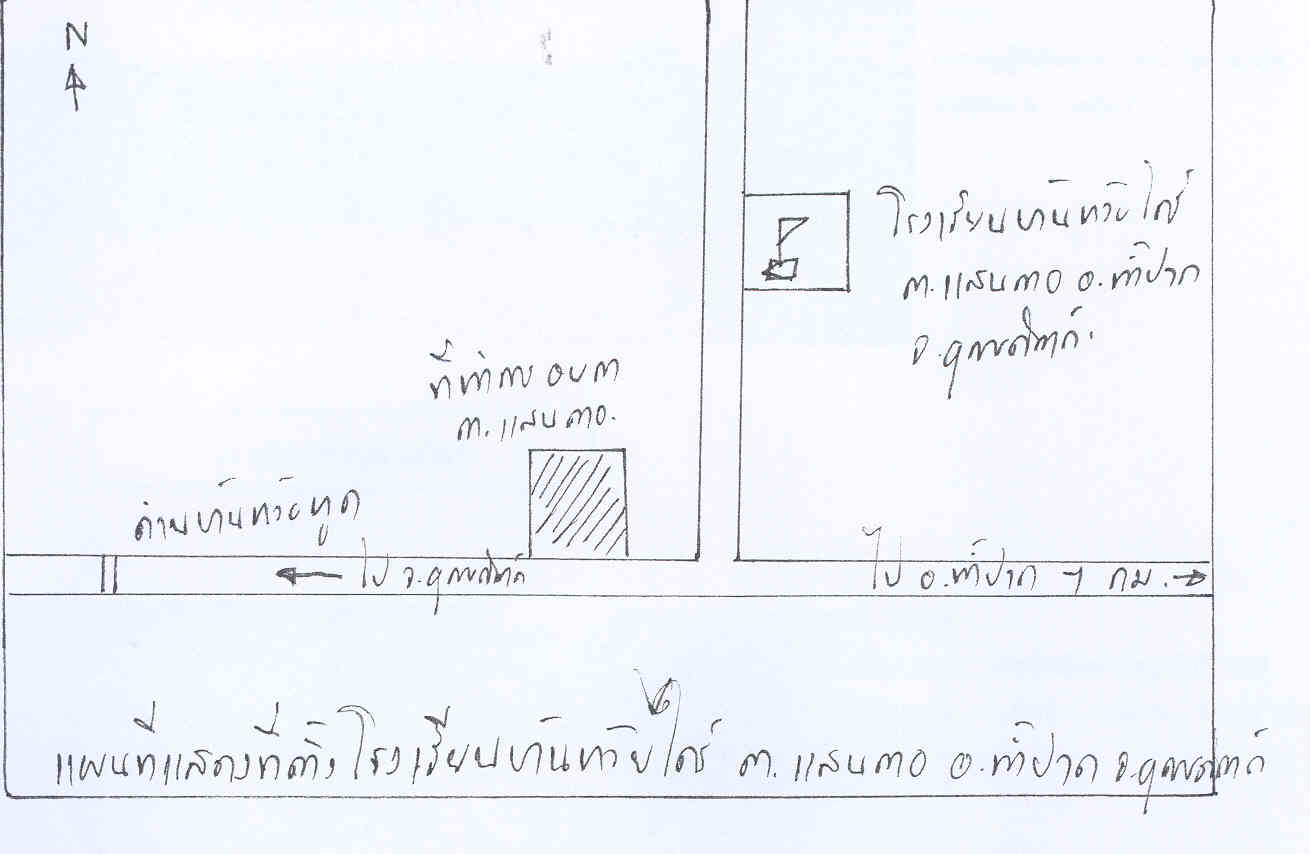 N
โรงเรียนบ้านห้วยไคร้
ต.แสนตอ อ.น้ำปาด
จ.อุตรดิตถ์.
ที่ทำการ อบต
ต.แสนตอ.
ห้วยทูด
ไป จ.อุตรดิตถ์
ไป อ.น้ำปาด 7 กม.
แผนที่แสดงที่ตั้งโรงเรียนบ้านห้วยไคร้ ต.แสนตอ อ.น้ำปาด จ.อุตรดิตถ์